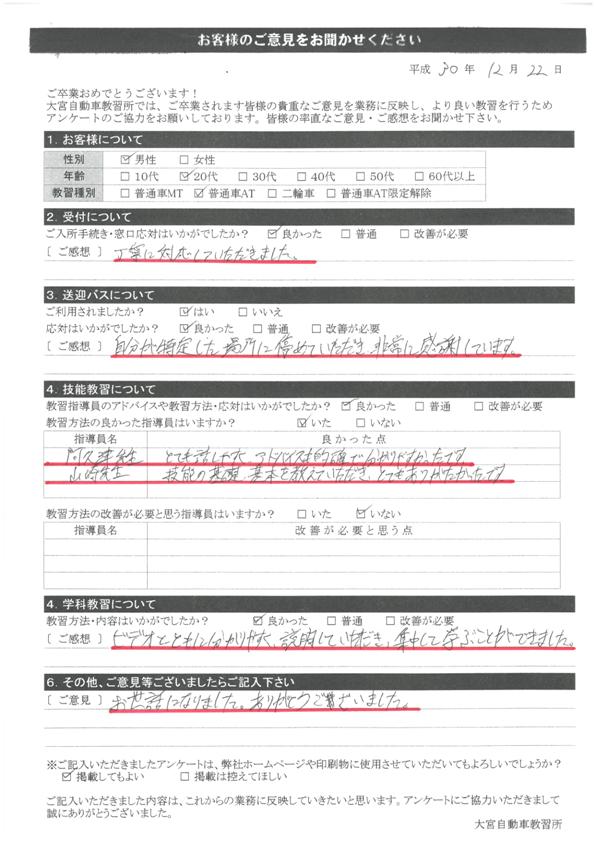 お客様のご意見をお聞かせください
平成 30 年 12 月 22 日
ご卒業おめでとうございます！
大宮自動車教習所では、ご卒業されます皆様の貴重なご意見を業務に反映し、より良い教習を行うため
アンケートのご協力をお願いしております。皆様の率直なご意見・ご感想をお聞かせ下さい。
1. お客様について
性別 ☑男性 □女性
年齢 □10代 ☑20代 □30代 □40代 □50代 □60代以上
教習種別 □普通車MT ☑普通車AT □二輪車 □普通車AT限定解除
2. 受付について
ご入所手続き・窓口応対はいかがでしたか？ ☑良かった □普通 □改善が必要
［ご感想］ 丁寧に対応していただきました。
3. 送迎バスについて
ご利用されましたか？ ☑はい □いいえ
応対はいかがでしたか？ ☑良かった □普通 □改善が必要
［ご感想］ 自分が特定した場所に停めていただき、非常に感謝しています。
4. 技能教習について
教習指導員のアドバイスや教習方法・応対はいかがでしたか？ ☑良かった □普通 □改善が必要
教習方法の良かった指導員はいますか？ ☑いた □いない
指導員名 良かった点
阿久津先生 とても話しやすく、アドバイスも的確で分かりやすかったです
山崎先生 技能の基礎、基本を教えていただき、とてもありがたかったです
教習方法の改善が必要と思う指導員はいますか？ □いた ☑いない
指導員名 改善が必要と思う点
4. 学科教習について
教習方法・内容はいかがでしたか？ ☑良かった □普通 □改善が必要
［ご感想］ ビデオとともに分かりやすく、説明していただき、集中して学ぶことができました。
6. その他、ご意見等ございましたらご記入下さい
［ご意見］ お世話になりました。ありがとうございました。
※ご記入いただきましたアンケートは、弊社ホームページや印刷物に使用させていただいてもよろしいでしょうか？
☑掲載してもよい □掲載は控えてほしい
ご記入いただきました内容は、これからの業務に反映していきたいと思います。アンケートにご協力いただきまして
誠にありがとうございました。
大宮自動車教習所